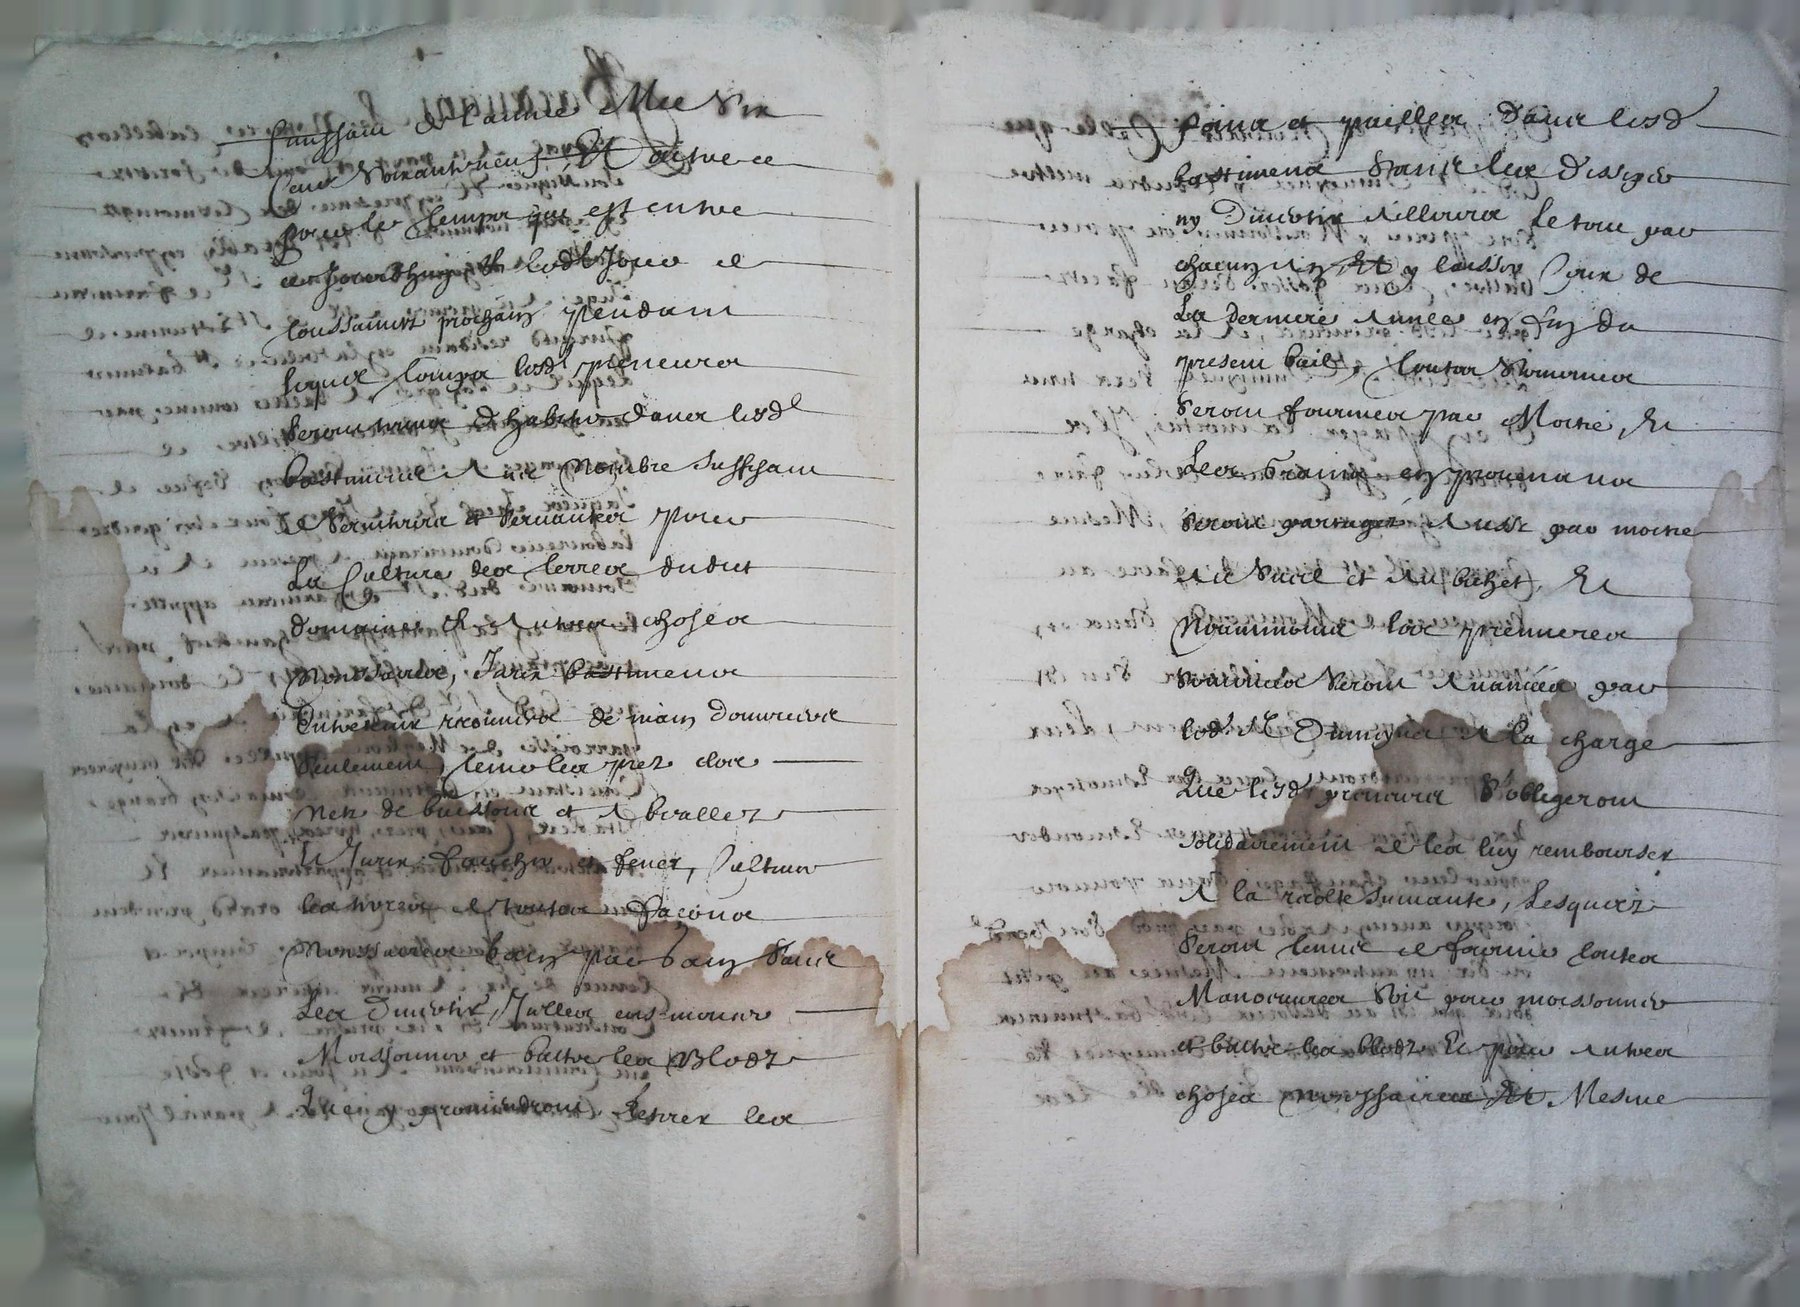 finissant de l'année Mil Six
Cent Soixante neuf, Et outre ce
pour le temps qui est entre
ce Jourdhuy et led.t Jour de
toussainctz prochain Pendant
lequel temps lesd preneurs
seront tenus d'habiter dans lesd
bastiments Avec Nombre suffisant
de Serviteurs et Servantes pour
La Culture des terres dudict
domaine et Autres choses
Necessaires, Iceux bastiments
Entretenir recouvrir de main d'ouvriers
Seulement, tenir les prez clos
Netz de buissons et
Et Iceux faucher et fener, Cultiver
les terres de toutes façons
Necessaires bain par bain Sans
Les Divertir, Icelles ensemencer
Moissonner et battre les Bledz
Qui en proviendront, Retirer les
foins et pailles Dans lesd
bastimens Sans les Dissiper
ny Divertir Ailleurs Le tout par
chacun An, Et y laisser Ceux de
La Derniere Annee en fin du
present bail, toutes Semences
Seront fournies par Moitié, Et
Les Grains en provenans
Seront partagez Aussi par moitié
Au Sueil et Au bichet, Et
Neantmoins les premieres
Semences Seront Avancées par
led. Sr A la charge
Que lesd preneurs S'obligeront
Solidairement de les luy rembourser
A la recolte suivante, Lesquelz
Seront tenus de fournir toutes
Manoeuvres Soit pour moissonner
et battre les bledz Et pour Autres
choses necessaires Et Mesme